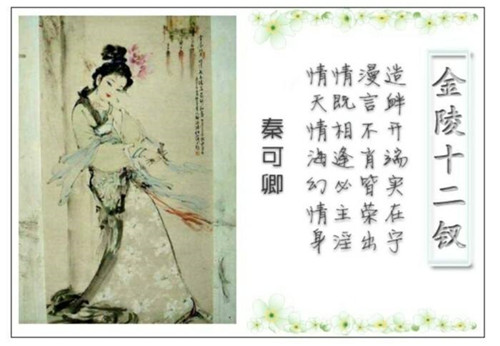 金陵十二钗
造衅开端实在宁
漫言不肖皆荣出
情既相逢必主淫
情天情海幻情身
秦可卿